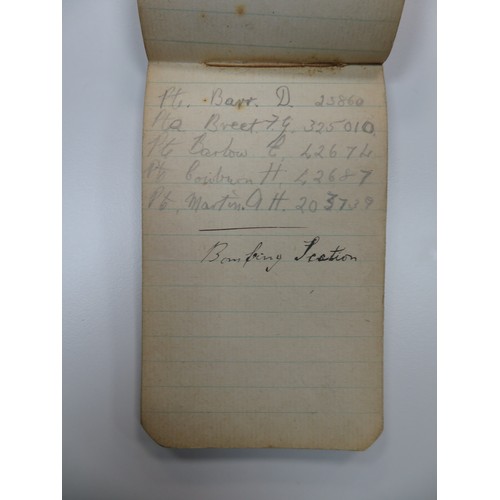 Pt. Barr. D. 25860
Pte Breet F.G 325010
Pte Barlow C. 42674
Pte H. 42687
Pt. Martin. A H. 203739
Bombing Section